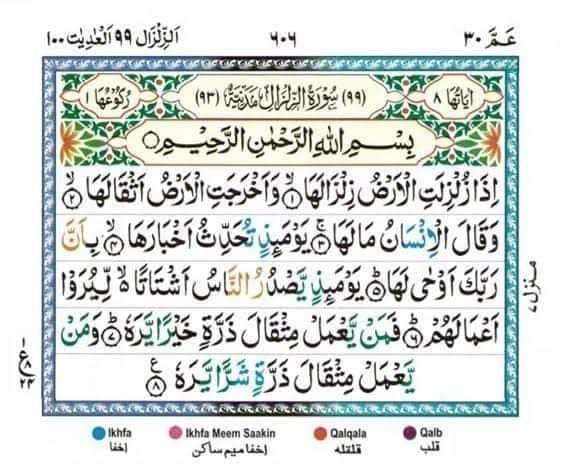 عَمَّ ٣٠
٦٠٦
اَلزِّلْزَال ٩٩ اَلْعٰدِيٰت ١٠٠
اٰيَاتُهَا ٨
(٩٩) سُوْرَةُ الزِّلْزَالِ مَدَنِيَّةٌ (٩٣)
رُكُوْعُهَا ١
بِسْمِ اللّٰهِ الرَّحْمٰنِ الرَّحِيْمِ
اِذَا زُلْزِلَتِ الْاَرْضُ زِلْزَالَهَا ۙ‏﴿۱﴾ وَاَخْرَجَتِ الْاَرْضُ اَثْقَالَهَا ۙ‏﴿۲﴾
وَقَالَ الْاِنْسَانُ مَا لَهَا ۚ‏﴿۳﴾ يَوْمَئِذٍ تُحَدِّثُ اَخْبَارَهَا ۙ‏﴿۴﴾ بِاَنَّ
رَبَّكَ اَوْحٰى لَهَا ؕ‏﴿۵﴾ يَوْمَئِذٍ يَّصْدُرُ النَّاسُ اَشْتَاتًا ۙ لِّيُرَوْا
اَعْمَالَهُمْ ؕ‏﴿۶﴾ فَمَنْ يَّعْمَلْ مِثْقَالَ ذَرَّةٍ خَيْرًا يَّرَهٗ ؕ‏﴿۷﴾ وَمَنْ
يَّعْمَلْ مِثْقَالَ ذَرَّةٍ شَرًّا يَّرَهٗ ‏﴿۸﴾
منزل ٧
ع ٨ ٢٤
Ikhfa Ikhfa Meem Saakin Qalqala Qalb
اخفا اخفا میم ساکن قلقله قلب